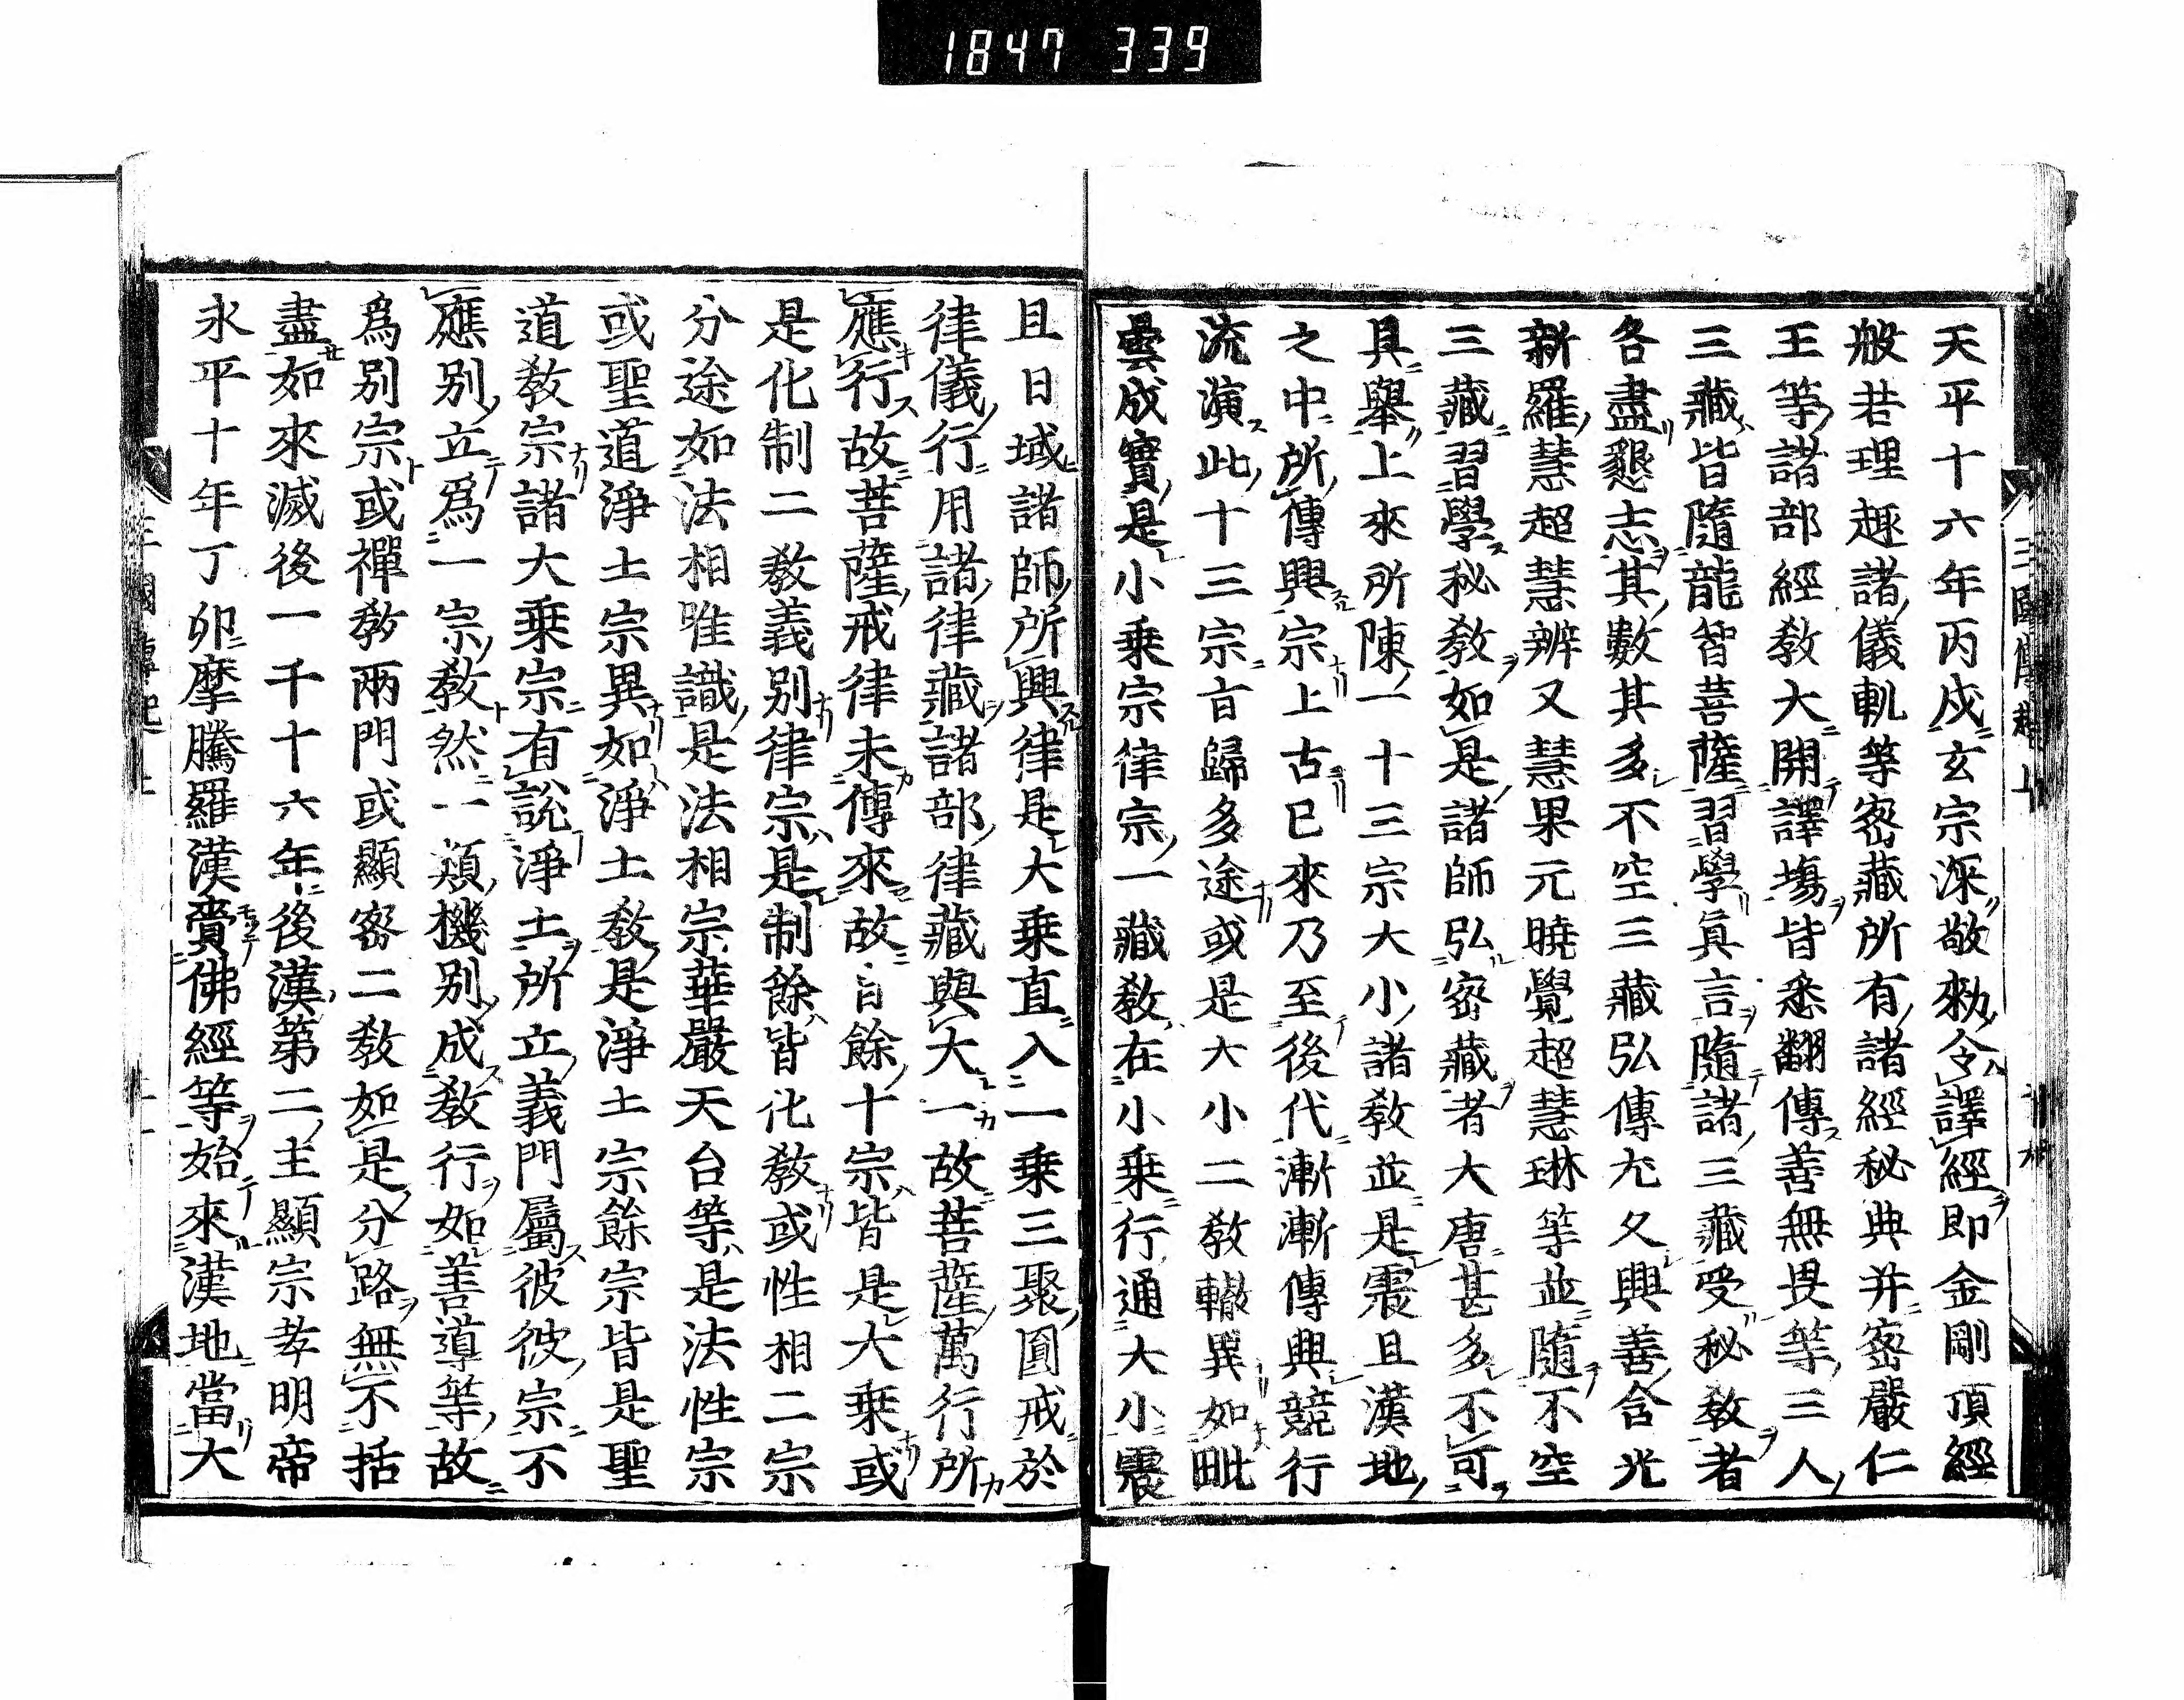 1847 339
天平十六年丙戍玄宗深敬勑令譯經即金剛頂經
般若理趣諸儀軌等密藏所有諸經秘典并密嚴仁
王等諸部經教大開譯場皆悉翻傳善無畏等三人
三藏皆隨龍智菩薩習學眞言隨諸三藏受秘教者
各盡懇志其數其多不空三藏弘傳尤久興善含光
新羅慧超慧辨又慧果元曉覺超慧琳等並隨不空
三藏習學秘教如是諸師弘密藏者大唐甚多不可
具舉上來所陳一十三宗大小諸教並是震旦漢地
之中所傳興宗上古已來乃至後代漸漸傳興競行
流演此十三宗旨歸多途或是大小二教轍異如毗
曇成實是小乘宗律宗一藏教在小乘行通大小震
且日域諸師所興律是大乘直入一乘三聚圓戒於
律儀行用諸律藏諸部律藏與大一故菩薩萬行所
應行故菩薩戒律未傳來故自餘十宗皆是大乘或
是化制二教義別律宗是制餘皆化教或性相二宗
分途如法相唯識是法相宗華嚴天台等是法性宗
或聖道淨土宗異如淨土教是淨土宗餘宗皆是聖
道教宗諸大乘宗有說淨土所立義門屬彼彼宗不
應別立爲一宗教然一類機別成教行如善導等故
爲別宗或禪教兩門或顯密二教如是分路無不括
盡如來滅後一千十六年後漢第二主顯宗孝明帝
永平十年丁卯摩騰羅漢賷佛經等始來漢地當大